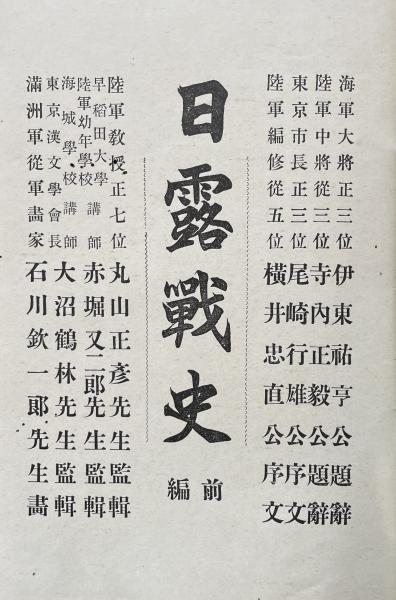 海軍大將正三位 伊東祐亨公題辭
陸軍中將從三位 寺內正毅公題辭
東京市長正三位 尾崎行雄公序文
陸軍編修從五位 橫井忠直公序文
日露戰史
前編
陸軍敎授正七位 丸山正彥先生監輯
早稻田大學
陸軍幼年學校 講師 赤堀又二郞先生監輯
海城學校講師
東京漢文學會長 大沼鶴林先生監輯
滿洲軍從軍畫家 石川欽一郞先生畫